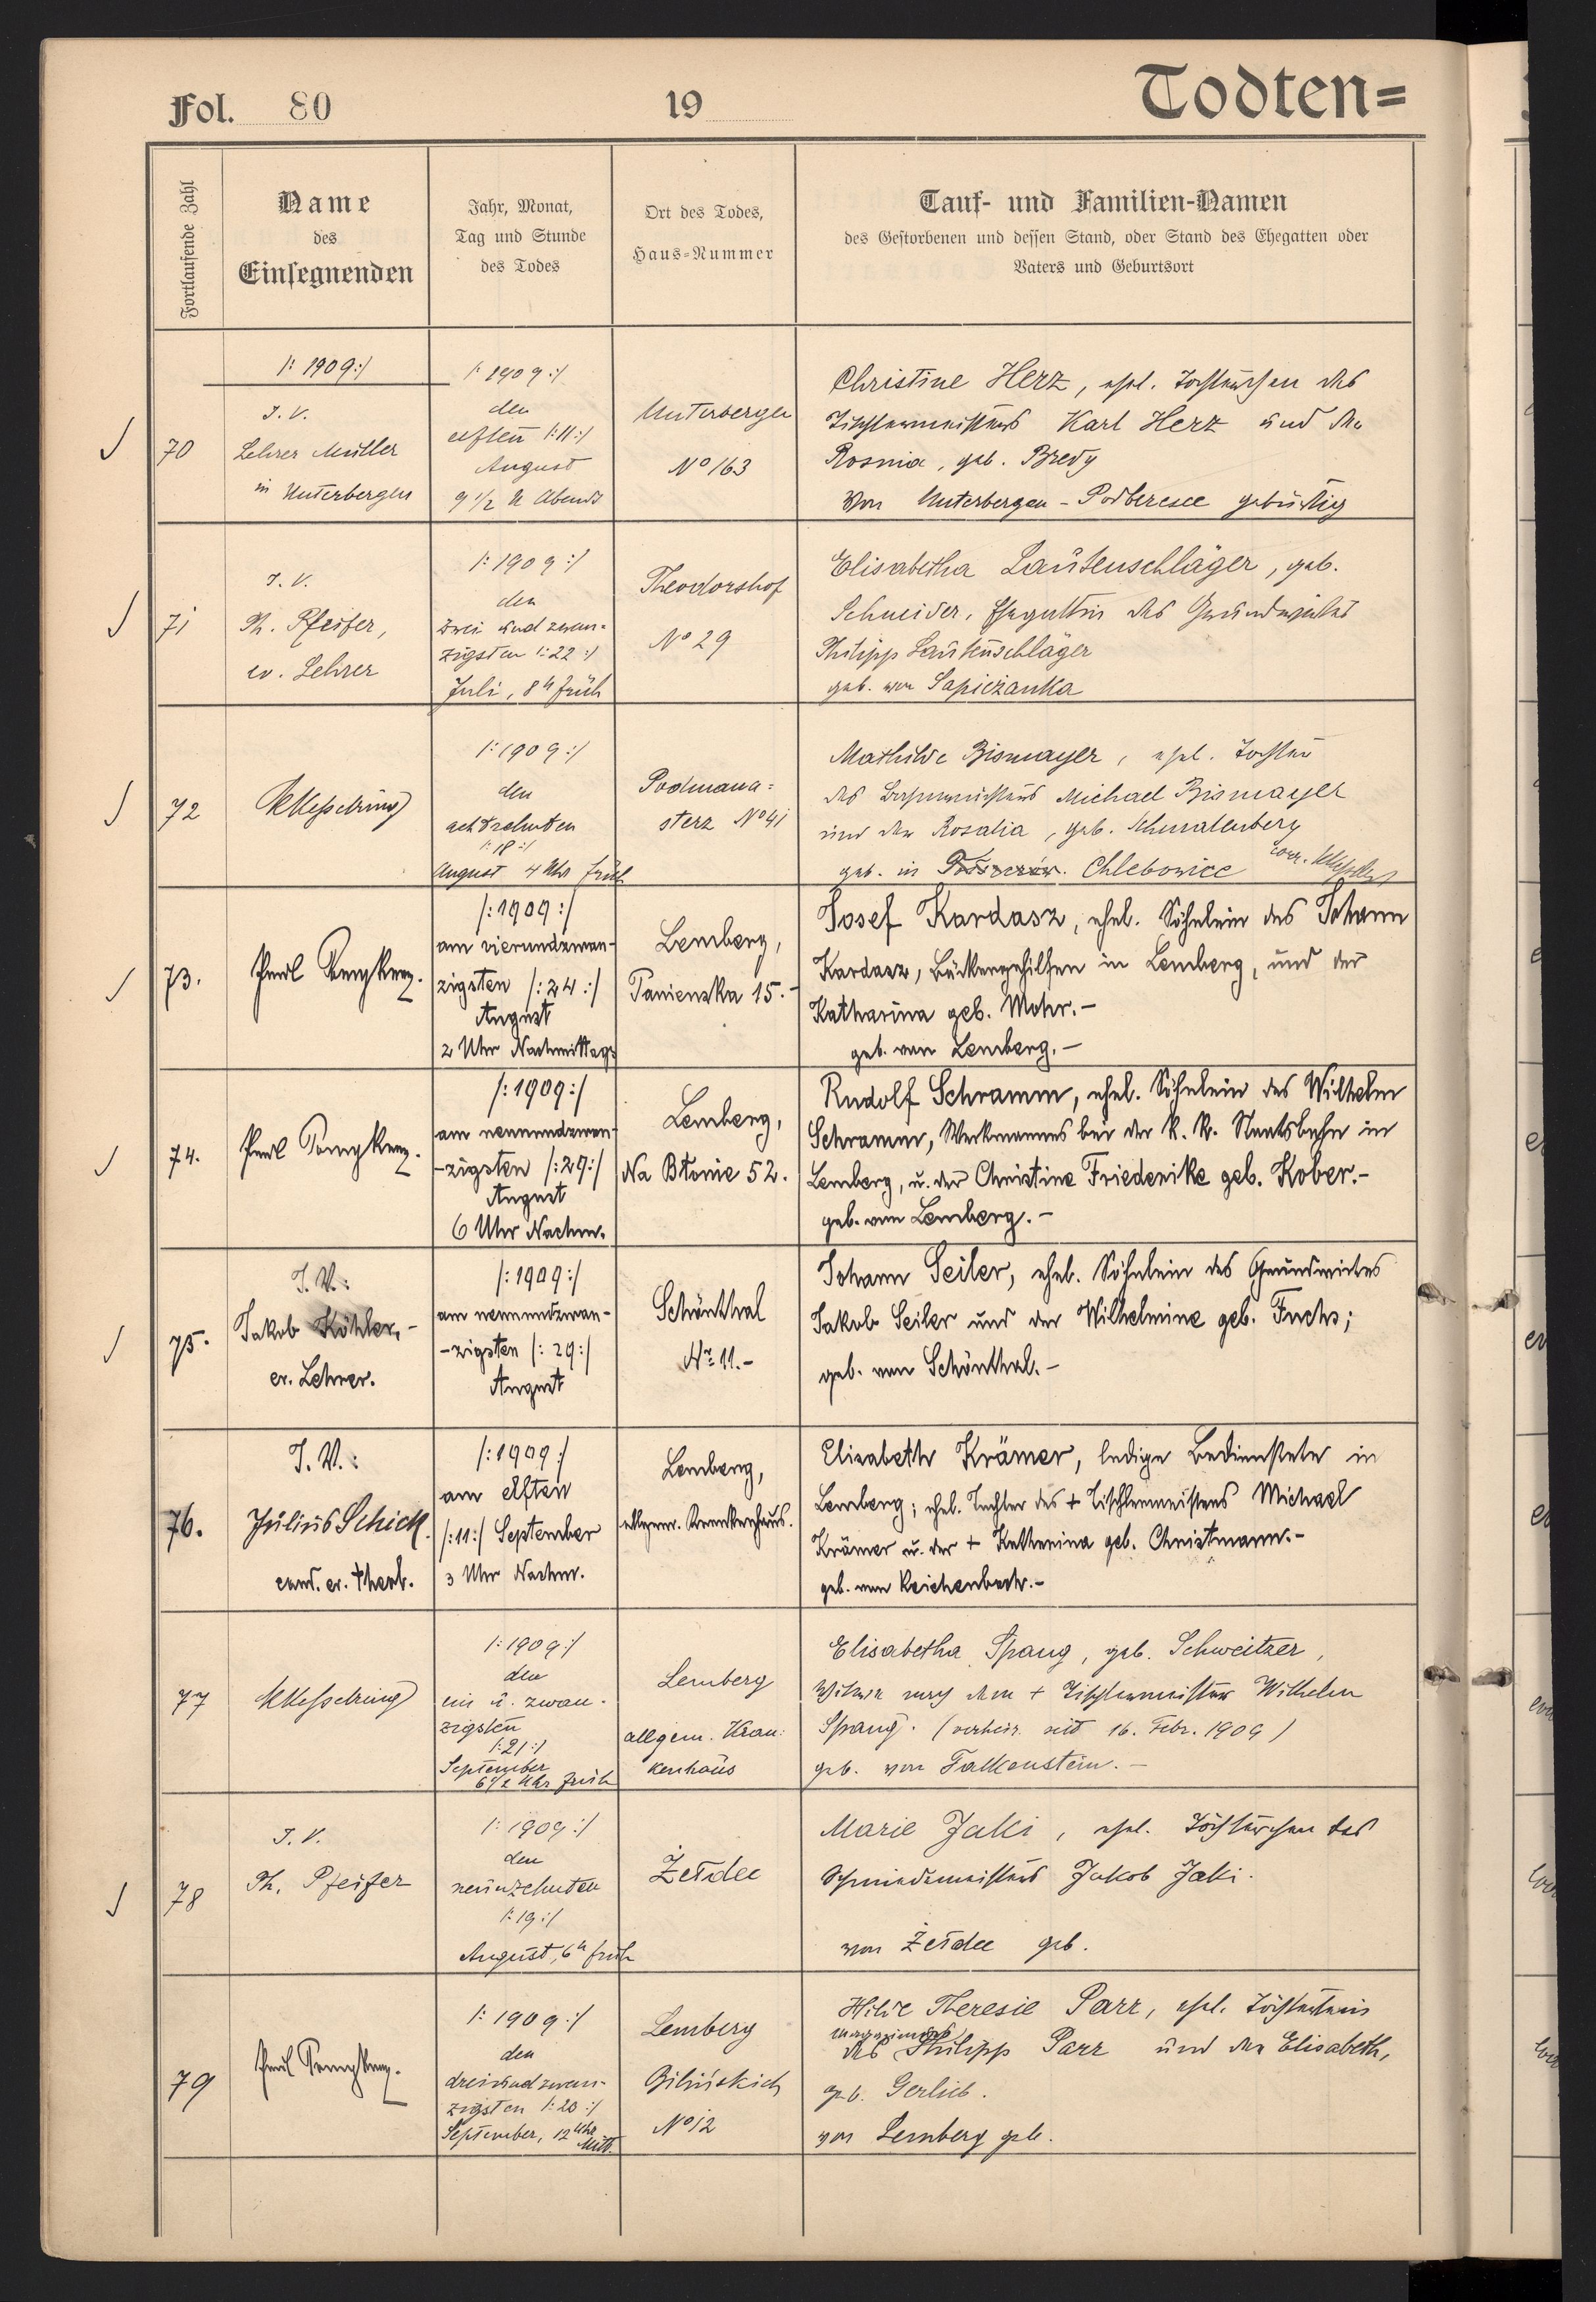 Fol. 80
19
Todten=
Fortlaufende Zahl
Name
des
Einsegnenden
Jahr, Monat,
Tag und Stunde
des Todes
Ort des Todes,
Haus-Nummer
Tauf- und Familien-Namen
des Gestorbenen und dessen Stand, oder Stand des Ehegatten oder
Vaters und Geburtsort
70
/: 1909:/
I. V.
Lehrer Müller
in Unterbergen
/: 1909 :/
den
elften /:11:/
August
9 1/2 U Abends
Unterbergen
No 163
Christine Herz, ehel. Töchterchen des
Tischlermeisters Karl Herz und der
Rosnia, geb. Bredy
von Unterbergen - Podberesce gebürtig
71
I. V.
Ph. Pfeifer,
ev. Lehrer
/: 1909 :/
den
zwei und zwan=
zigsten /:22:/
Juli, 8h früh
Theodorshof
No 29
Elisabetha Lautenschläger, geb.
Schneider, Ehegattin des Grundwirtes
Philipp Lautenschläger
geb. von Sapieżanka
72
Kesselring
/: 1909 :/
den
achtzehnten
/:18:/
August 4 Uhr früh
Podmana=
sterz No 41
Mathilde Bismayer, ehel. Tochter
des Michael Bismayer
und der Rosalia, geb. Schmalenberg
geb. in Chlebowice corr. Kesselring
73.
Paul
/: 1909 :/
am vierundzwan-
zigsten /: 24 :/
August
2 Uhr Nachmittags
Lemberg,
Panienska 15.-
Josef Kardasz, ehel. Söhnlein des Johann
Kardasz, Bäckergehilfen in Lemberg, und der
Katharina geb. Mohr.-
geb. von Lemberg.-
74.
Paul
/: 1909 :/
am neunundzwan-
-zigsten /:29:/
August
6 Uhr Nachm.
Lemberg,
Na Błonie 52.
Rudolf Schramm, ehel. Söhnlein des Wilhelm
Schramm, Werkmannes bei der k. k. Staatsbahn in
Lemberg, u. der Christine Friederike geb. Kober.-
geb. von Lemberg.-
75.
I. V.:
Jakob Köhler,-
ev. Lehrer.
/: 1909 :/
am neunundzwan-
-zigsten /: 29:/
August
Schönthal
Nr. 11.-
Johann Seiler, ehel. Söhnlein des Grundwirtes
Jakob Seiler und der Wilhelmine geb. Fuchs;
geb. von Schönthal.-
76.
I. V.:
Julius Schick.
cand. ev. theol.
/: 1909 :/
am elften
/:11:/ September
3 Uhr Nachm.
Lemberg,
allgem. Krankenhaus.
Elisabeth Krämer, ledige Bedienstete in
Lemberg; ehel. Tochter des + Tischlermeisters Michael
Krämer u. der + Katharina geb. Christmann.-
geb. von Reichenbach.-
77
Kesselring
/: 1909 :/
den
ein u. zwan=
zigsten
/:21:/
September
6 1/2 Uhr früh
Lemberg
allgem. Kran=
kenhaus
Elisabetha Spang, geb. Schweitzer,
Witwe nach dem + Tischlermeister Wilhelm
Spang. (verheir. seit 16. Febr. 1909)
geb. von Falkenstein.-
78
I. V.
Ph. Pfeifer
/: 1909 :/
den
neunzehnten
/: 19 :/
August, 6h früh
Żełdec
Marie Jaki, ehel. Töchterchen des
Schmiedemeisters Jakob Jaki.
von Żełdec geb.
79
Paul
/: 1909 :/
den
dreiundzwan=
zigsten /: 23 :/
September, 12 Uhr
Mitt.
Lemberg
Bilińskich
No 12
Hilde Theresie Parr, ehel. Töchterlein
des Philipp Parr und der Elisabeth,
geb. Gerlieb.
von Lemberg geb.